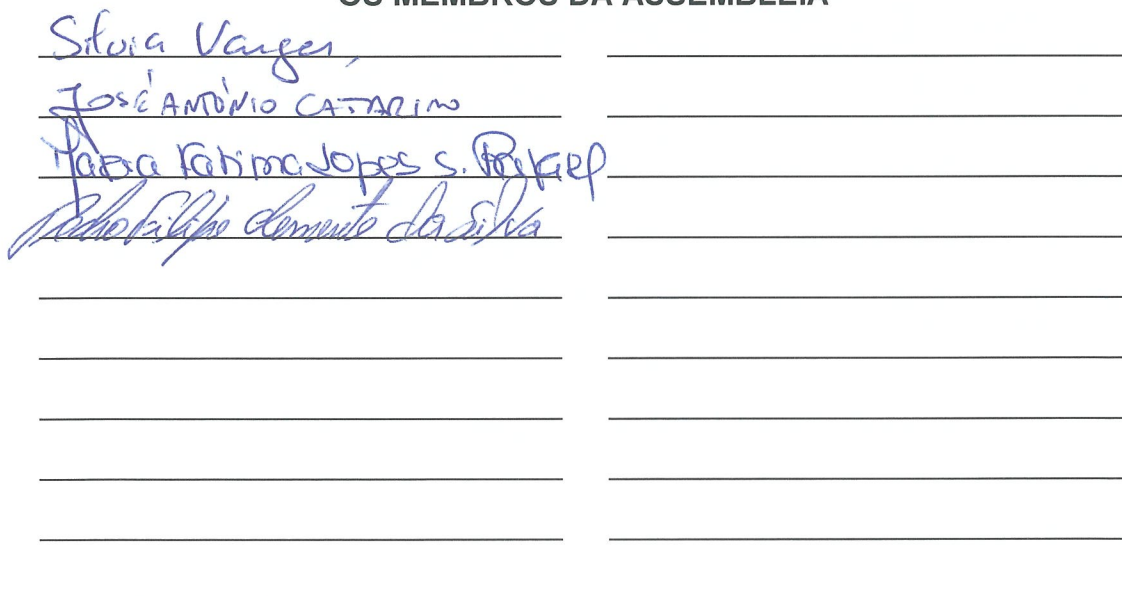 OS MEMBROS DA ASSEMBLEIA
Silvia Vargas
JOSÉ ANTÓNIO CATARINO
Maria Fátima Lopes S. Rafael
Pedro Filipe Clemente da Silva